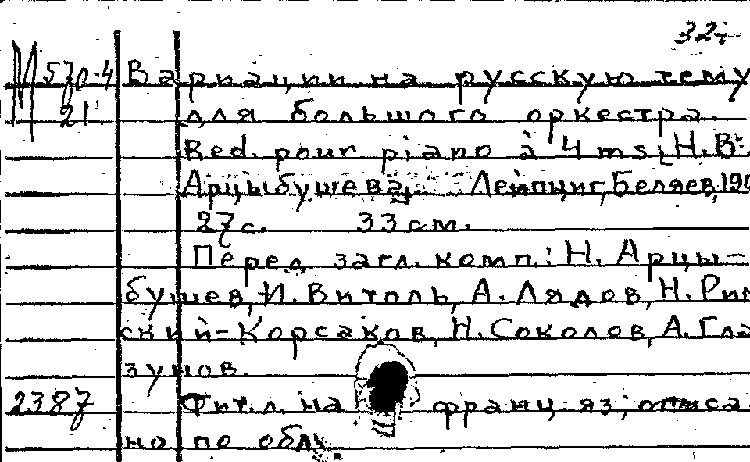 32т
М 570-4 Вариации на русскую тему
21 для большого оркестра.
Red. pour piano à 4 ms. Н.В.
Арцыбушева. Лейпциг, Беляев, 190
27с. 33 см.
Перед загл. комп.: Н. Арцы-
бушев, И. Витоль, А. Лядов, Н. Рим
ский-Корсаков, Н. Соколов, А. Гла
зунов.
2387 Тит. л. на франц. яз; описа
но по обл.